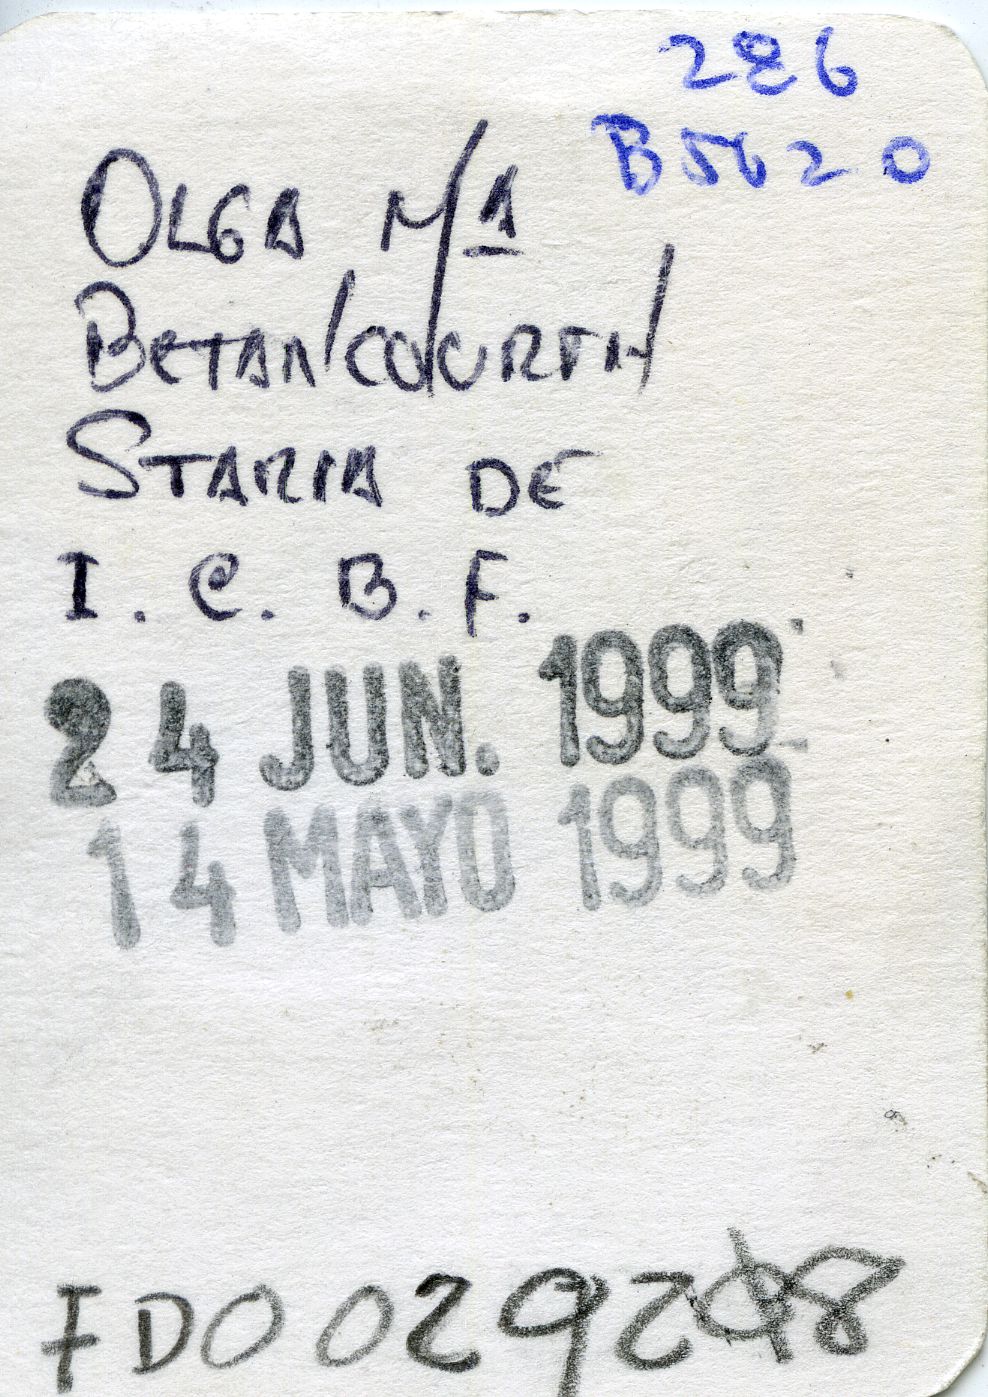 286
B5620
OLGA Mª
BETANCOURTH
STARIA DE
I.C.B.F.
24 JUN. 1999
14 MAYO 1999